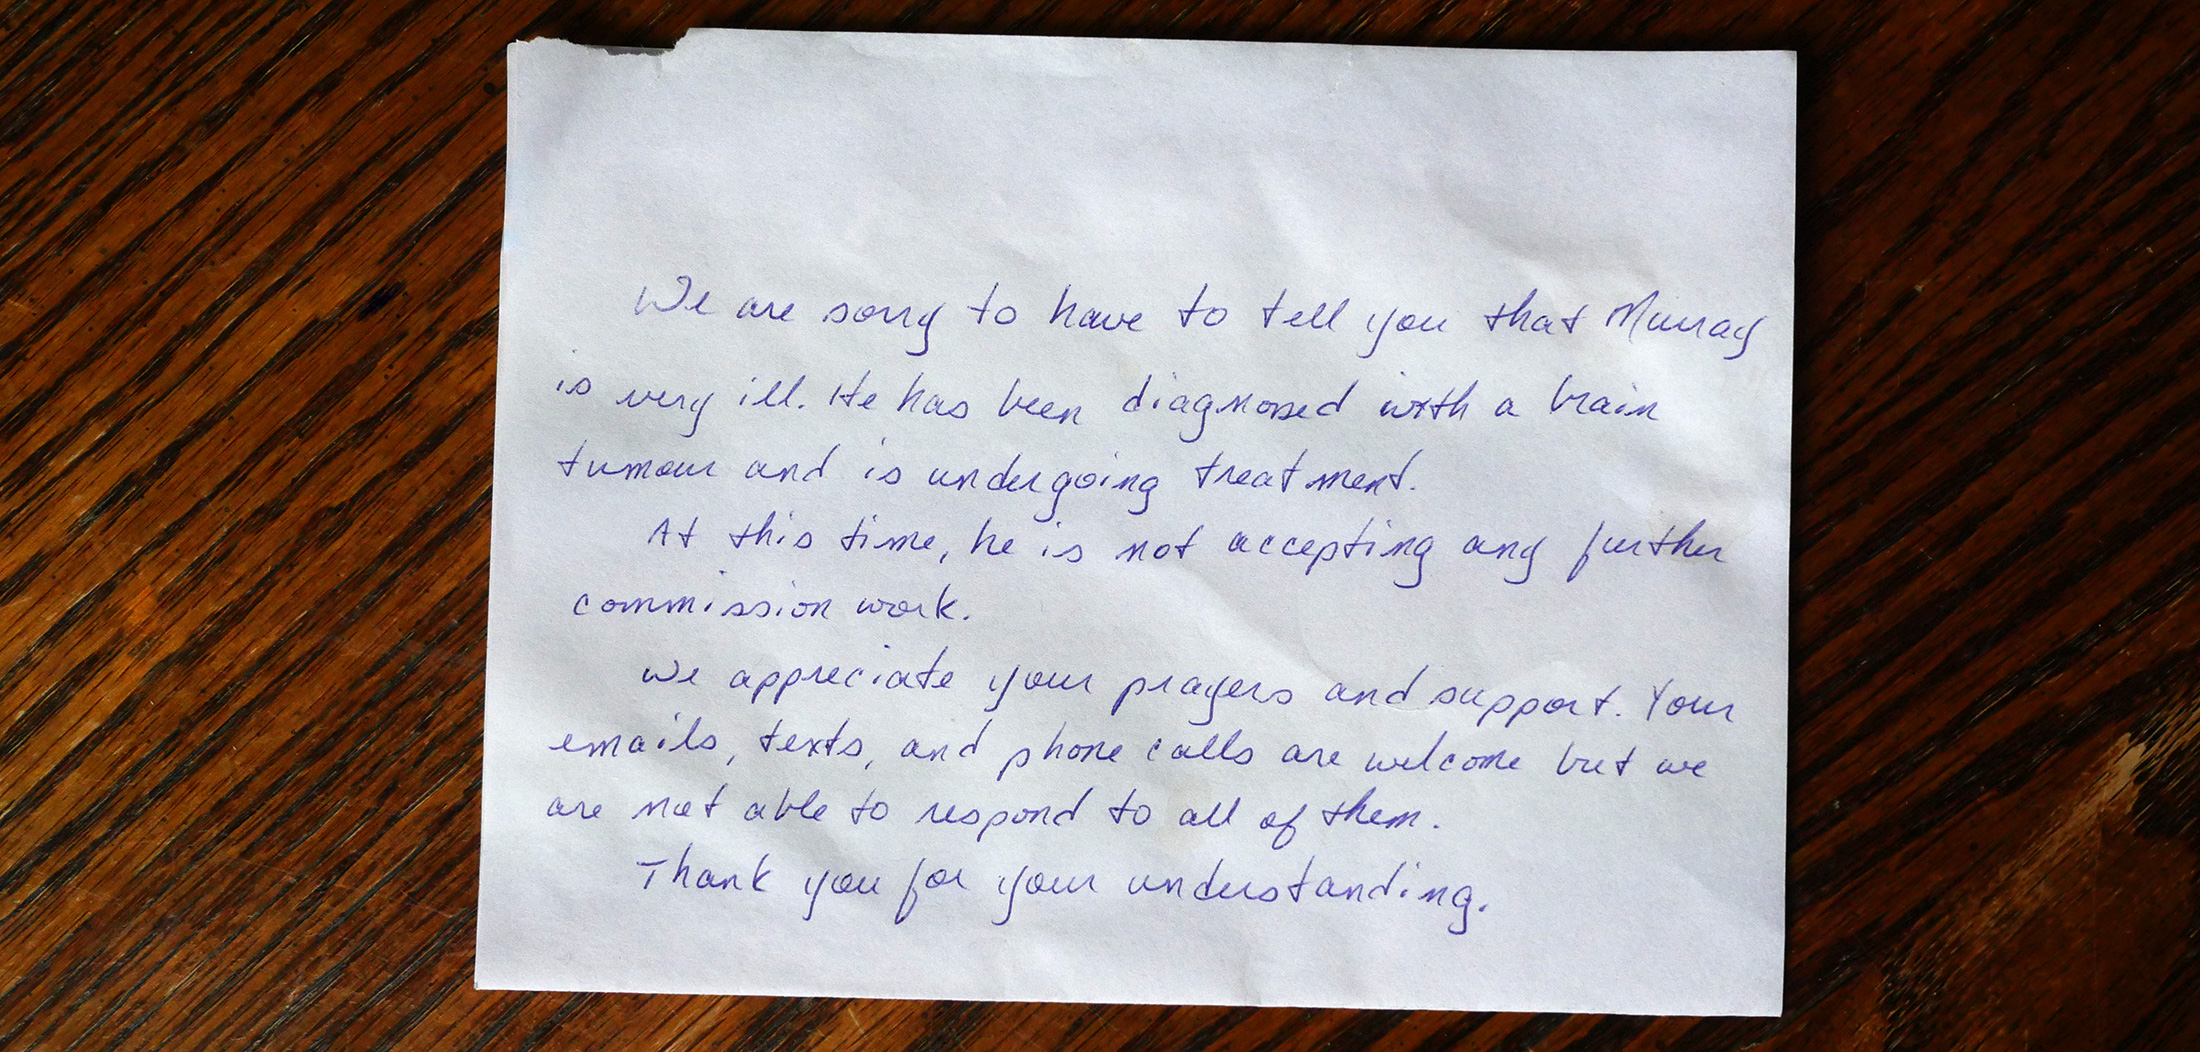 We are sorry to have to tell you that Murray
is very ill. He has been diagnosed with a brain
tumour and is undergoing treatment.
At this time, he is not accepting any further
commission work.
We appreciate your prayers and support. Your
emails, texts, and phone calls are welcome but we
are not able to respond to all of them.
Thank you for your understanding.